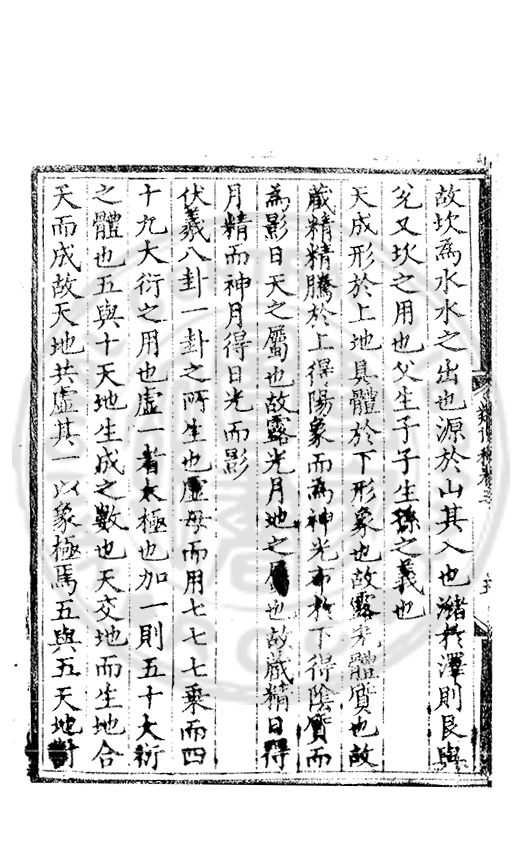 故坎為水水之出也源於山其入也瀦於澤則艮與
兌又坎之用也父生子子生孫之義也
天成形於上地具體於下形象也故露光體質也故
藏精精騰於上得陽象而為神光布於下得陰質而
為影日天之屬也故露光月地之屬也故藏精日得
月精而神月得日光而影
伏羲八卦一卦之所生也虛母而用七七七乘而四
十九大衍之用也虛一者太極也加一則五十大衍
之體也五與十天地生成之數也天交地而生地合
天而成故天地共虛其一以象極焉五與五天地對